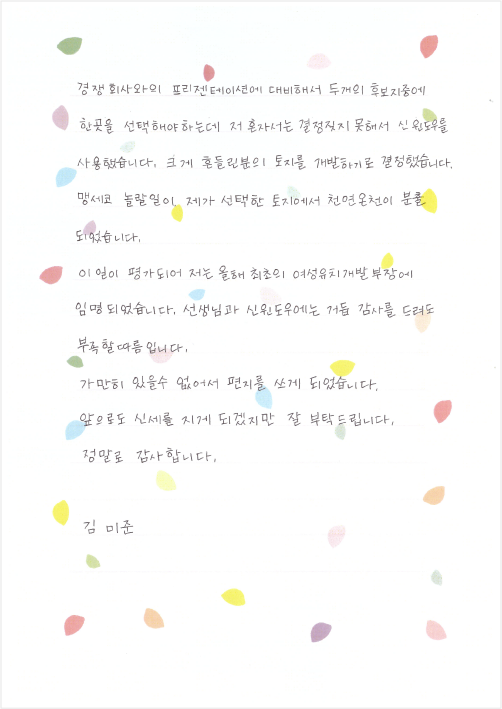 경쟁회사와의 프리젠테이션에 대비해서 두개의 후보지중에
한곳을 선택해야하는데 저 혼자서는 결정짓지 못해서 신원도우를
사용했습니다. 크게 흔들린분의 토지를 개발하기로 결정했습니다.
맹세코 놀랄일이, 제가 선택한 토지에서 천연온천이 분출
되었습니다.
이일이 평가되어 저는 올해 최초의 여성유치개발부장에
임명되었습니다. 선생님과 신원도우에는 거듭 감사를 드려도
부족할따름입니다.
가만히 있을수 없어서 편지를 쓰게 되었습니다.
앞으로도 신세를 지게 되겠지만 잘 부탁드립니다.
정말로 감사합니다.
김 미준